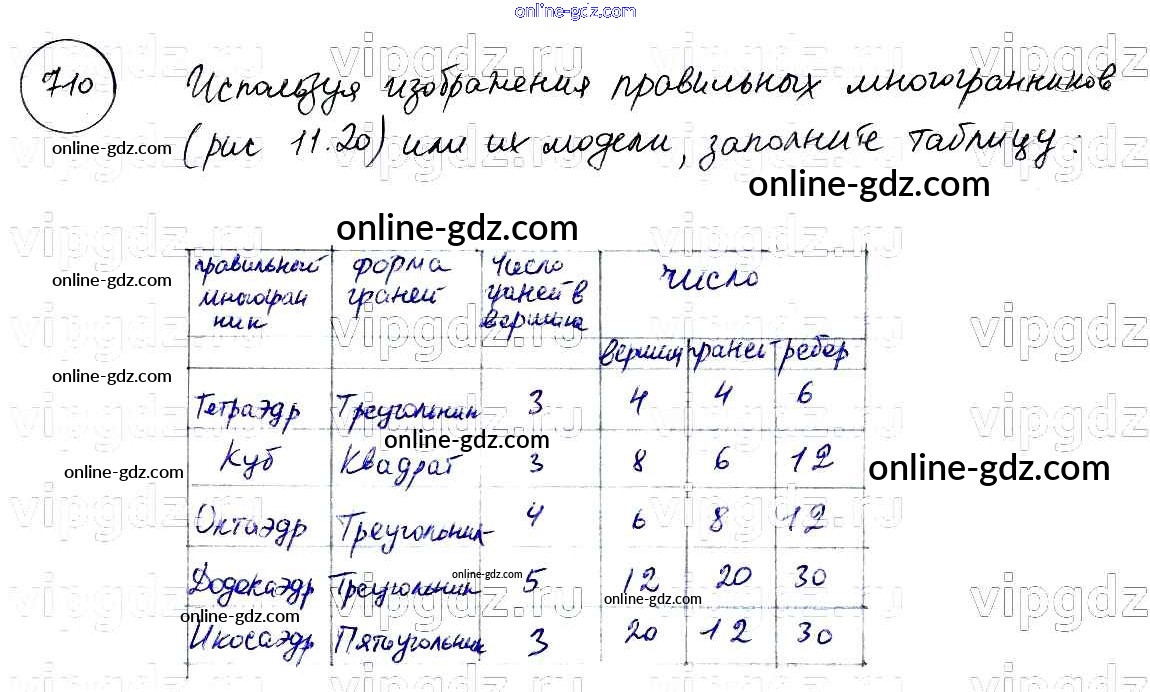 online-gdz.com
710
Используя изображения правильных многогранников
(рис 11.20) или их модели, заполните таблицу.
online-gdz.com
online-gdz.com
online-gdz.com
online-gdz.com
правильный многогран ник | форма граней | число граней в вершине | число
вершин | граней | ребер
online-gdz.com
Тетраэдр | Треугольник | 3 | 4 | 4 | 6
online-gdz.com
Куб | Квадрат | 3 | 8 | 6 | 12
online-gdz.com
online-gdz.com
Октаэдр | Треугольник | 4 | 6 | 8 | 12
Додекаэдр | Треугольник | 5 | 12 | 20 | 30
online-gdz.com
online-gdz.com
online-gdz.com
Икосаэдр | Пятиугольник | 3 | 20 | 12 | 30
vipgdz.ru